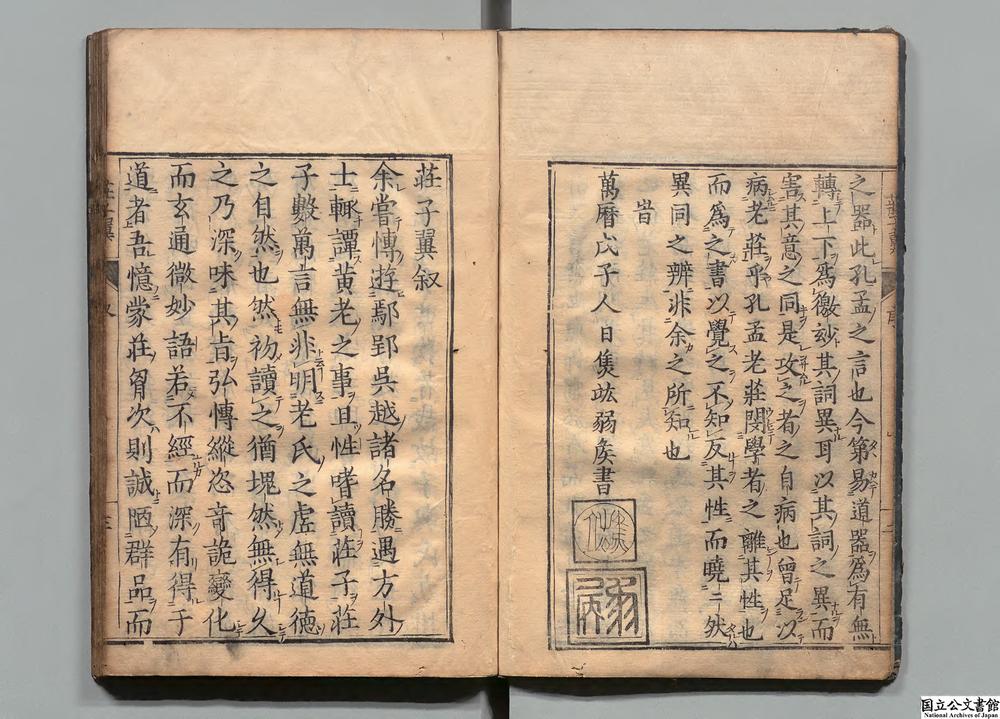 之器此孔孟之言也今第易道器爲有無
轉上下爲徼玅其詞異耳以其詞之異而
害其意之同是攻之者之自病也曾足以
病老莊乎孔孟老莊閔學者之離其性也
而爲之書以覺之不知反其性而曉二然
異同之辨非余之所知也
旹
萬曆戊子人日焦竑弱侯書
莊子翼叙
余嘗慱遊鄢郢吳越諸名勝遇方外
士輙譚黃老之事且性嗜讀莊子莊
子數萬言無非明老氏之虛無道德
之自然也然初讀之猶塊然無得久
之乃深味其旨弘慱縱恣竒詭變化
而玄通微妙語若不經而深有得于
道者吾憶蒙莊胷次則誠陋群品而
国立公文書館
National Archives of Japan